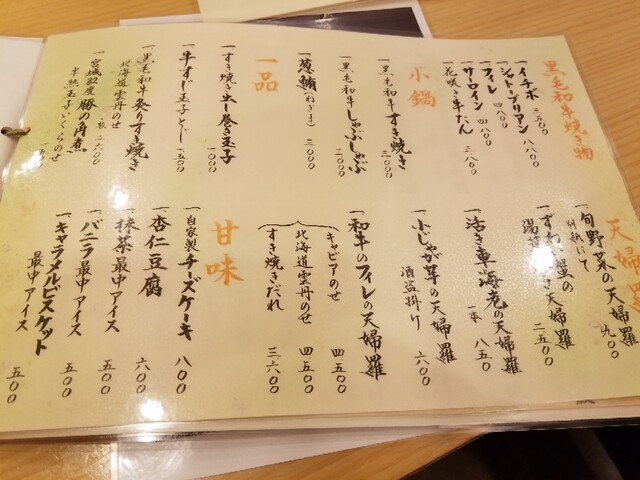 黒毛和牛焼き物
一 イチボ 三五〇〇
一 シャトーブリアン 八八〇〇
一 フィレ 四八〇〇
一 サーロイン 四八〇〇
一 花咲き牛たん 三八〇〇
小鍋
一 黒毛和牛すき焼き 三〇〇〇
一 黒毛和牛しゃぶしゃぶ 三〇〇〇
一 葱鮪(ねぎま) 三〇〇〇
一品
一 すき焼き出し巻き玉子 一〇〇〇
一 牛すじ玉子とじ 一五〇〇
一 黒毛和牛炙りすき焼き
北海道雲丹のせ 二六〇〇
一 宮城32度 豚の角煮
半熟玉子いくらのせ
天婦羅
一 旬野菜の天婦羅 九〇〇
別紙にて
一 ずわい蟹の
天婦羅 二五〇〇
一 活き車海老の天婦羅
一本 八五〇
一 小じゃが芋の天婦羅
酒盗掛け 六〇〇
一 和牛のフィレの天婦羅
キャビアのせ 四五〇〇
北海道雲丹のせ 四五〇〇
すき焼きだれ 三六〇〇
甘味
一 自家製チーズケーキ 八〇〇
一 杏仁豆腐 六〇〇
一 抹茶最中アイス 五〇〇
一 バニラ最中アイス 五〇〇
一 キャラメルビスケット
最中アイス 五〇〇